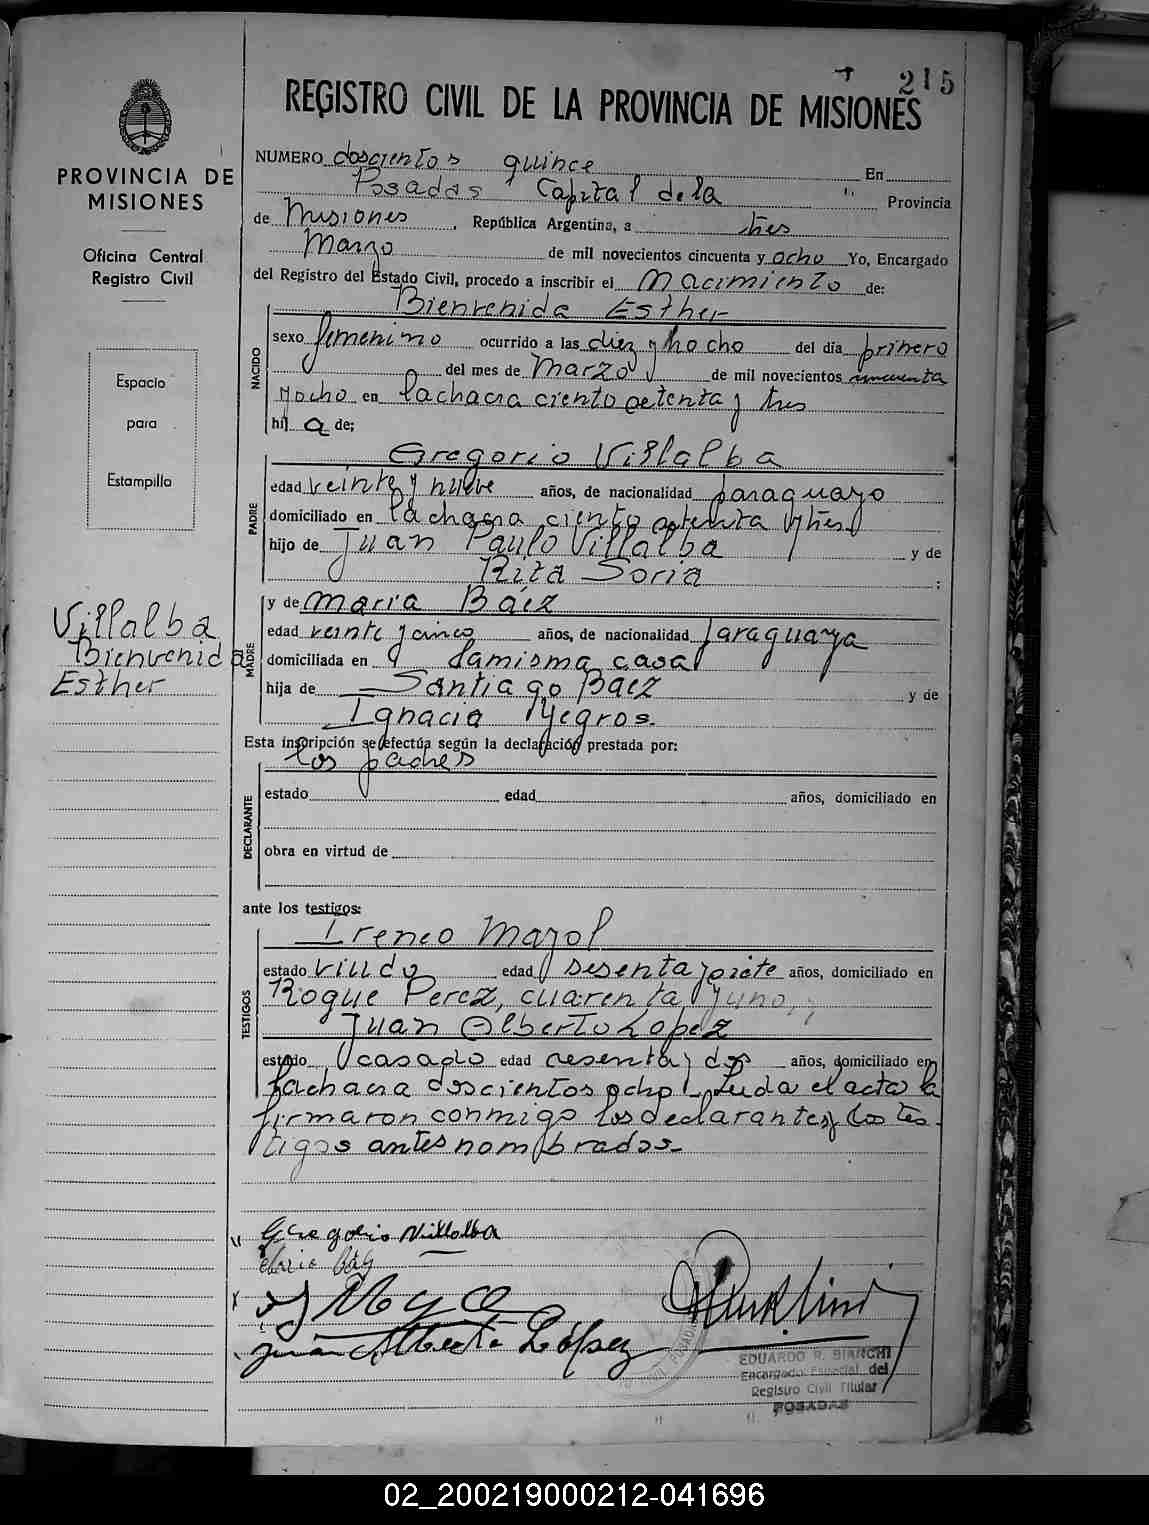 215
REGISTRO CIVIL DE LA PROVINCIA DE MISIONES
PROVINCIA DE
MISIONES
Oficina Central
Registro Civil
Espacio
para
Estampilla
Villalba
Bienvenida
Esther
NUMERO doscientos quince En
Posadas Capital de la Provincia
de Misiones, República Argentina, a tres
Marzo de mil novecientos cincuenta y ocho Yo, Encargado
del Registro del Estado Civil, procedo a inscribir el Nacimiento de:
Bienvenida Esther
NACIDO
sexo femenino ocurrido a las diez y hocho del día primero
del mes de Marzo de mil novecientos cincuenta
y ocho en la chacra ciento setenta y tres
hij a de;
PADRE
Gregorio Villalba
edad veinte y nueve años, de nacionalidad paraguayo
domiciliado en la chacra ciento setenta y tres
hijo de Juan Paulo Villalba y de
Rita Soria ;
MADRE
y de Maria Báez
edad veinte y cinco años, de nacionalidad paraguaya
domiciliada en la misma casa
hija de Santiago Baez y de
Ignacia Yegros.
Esta inscripción se efectúa según la declaración prestada por:
los padres
DECLARANTE
estado edad años, domiciliado en
obra en virtud de
ante los testigos:
TESTIGOS
Ireneo Mayol
estado viudo edad sesenta y siete años, domiciliado en
Roque Perez, cuarenta y uno,
Juan Alberto Lopez
estado casado edad sesenta y dos años, domiciliado en
la chacra doscientos ocho. Leida el acta la
firmaron conmigo los declarantes y los tes-
tigos antes nombrados.-
Gregorio Villalba
Maria Báez
Juan Alberto López
EDUARDO R. BIANCHI
Encargado Especial del
Registro Civil Titular
POSADAS
02_200219000212-041696